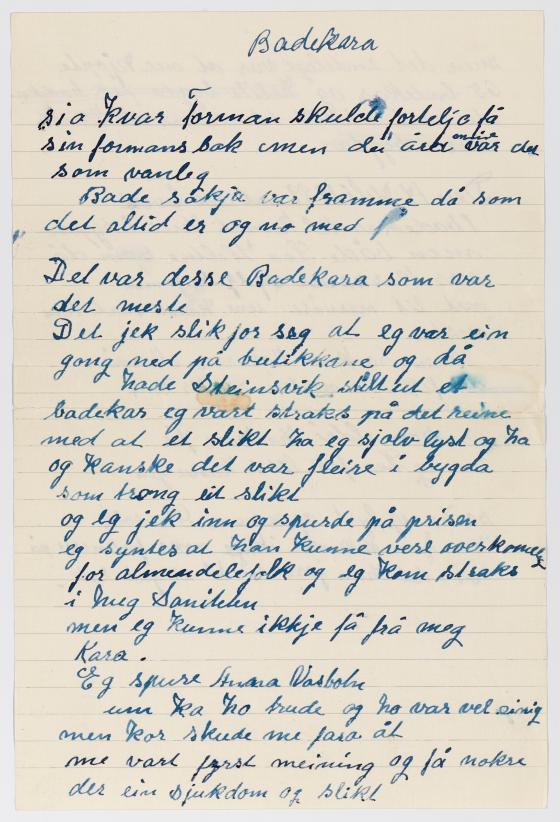 Badekara
sia kvar Forman skulde fortelja få
sin formans bok men du åra var det
som vanleg
Bade såkja var framme då som
det altid er og no med
Det var desse Badekara som var
det meste
Det jek slik jor seg at eg var ein
gong ned på butikkane og då
hade Steinsvik stilt ut et
badekar eg vart straks på det reine
med at et slikt ha eg sjolv lyst og ha
og kanske det var fleire i bygda
som trong eit slikt
og eg jek inn og spurde på prisen
eg syntes at han kunne vere overkomele
for almendelefolk og eg kom straks
i hug Saniteten
men eg kunne ikkje få frå meg
Kara.
Eg spure Anna Vasboln
um ka ho trude og ho var vel einig
men kor skude me fara åt
me vart fyrst meining og få nokre
der ein sjukdom og slikt